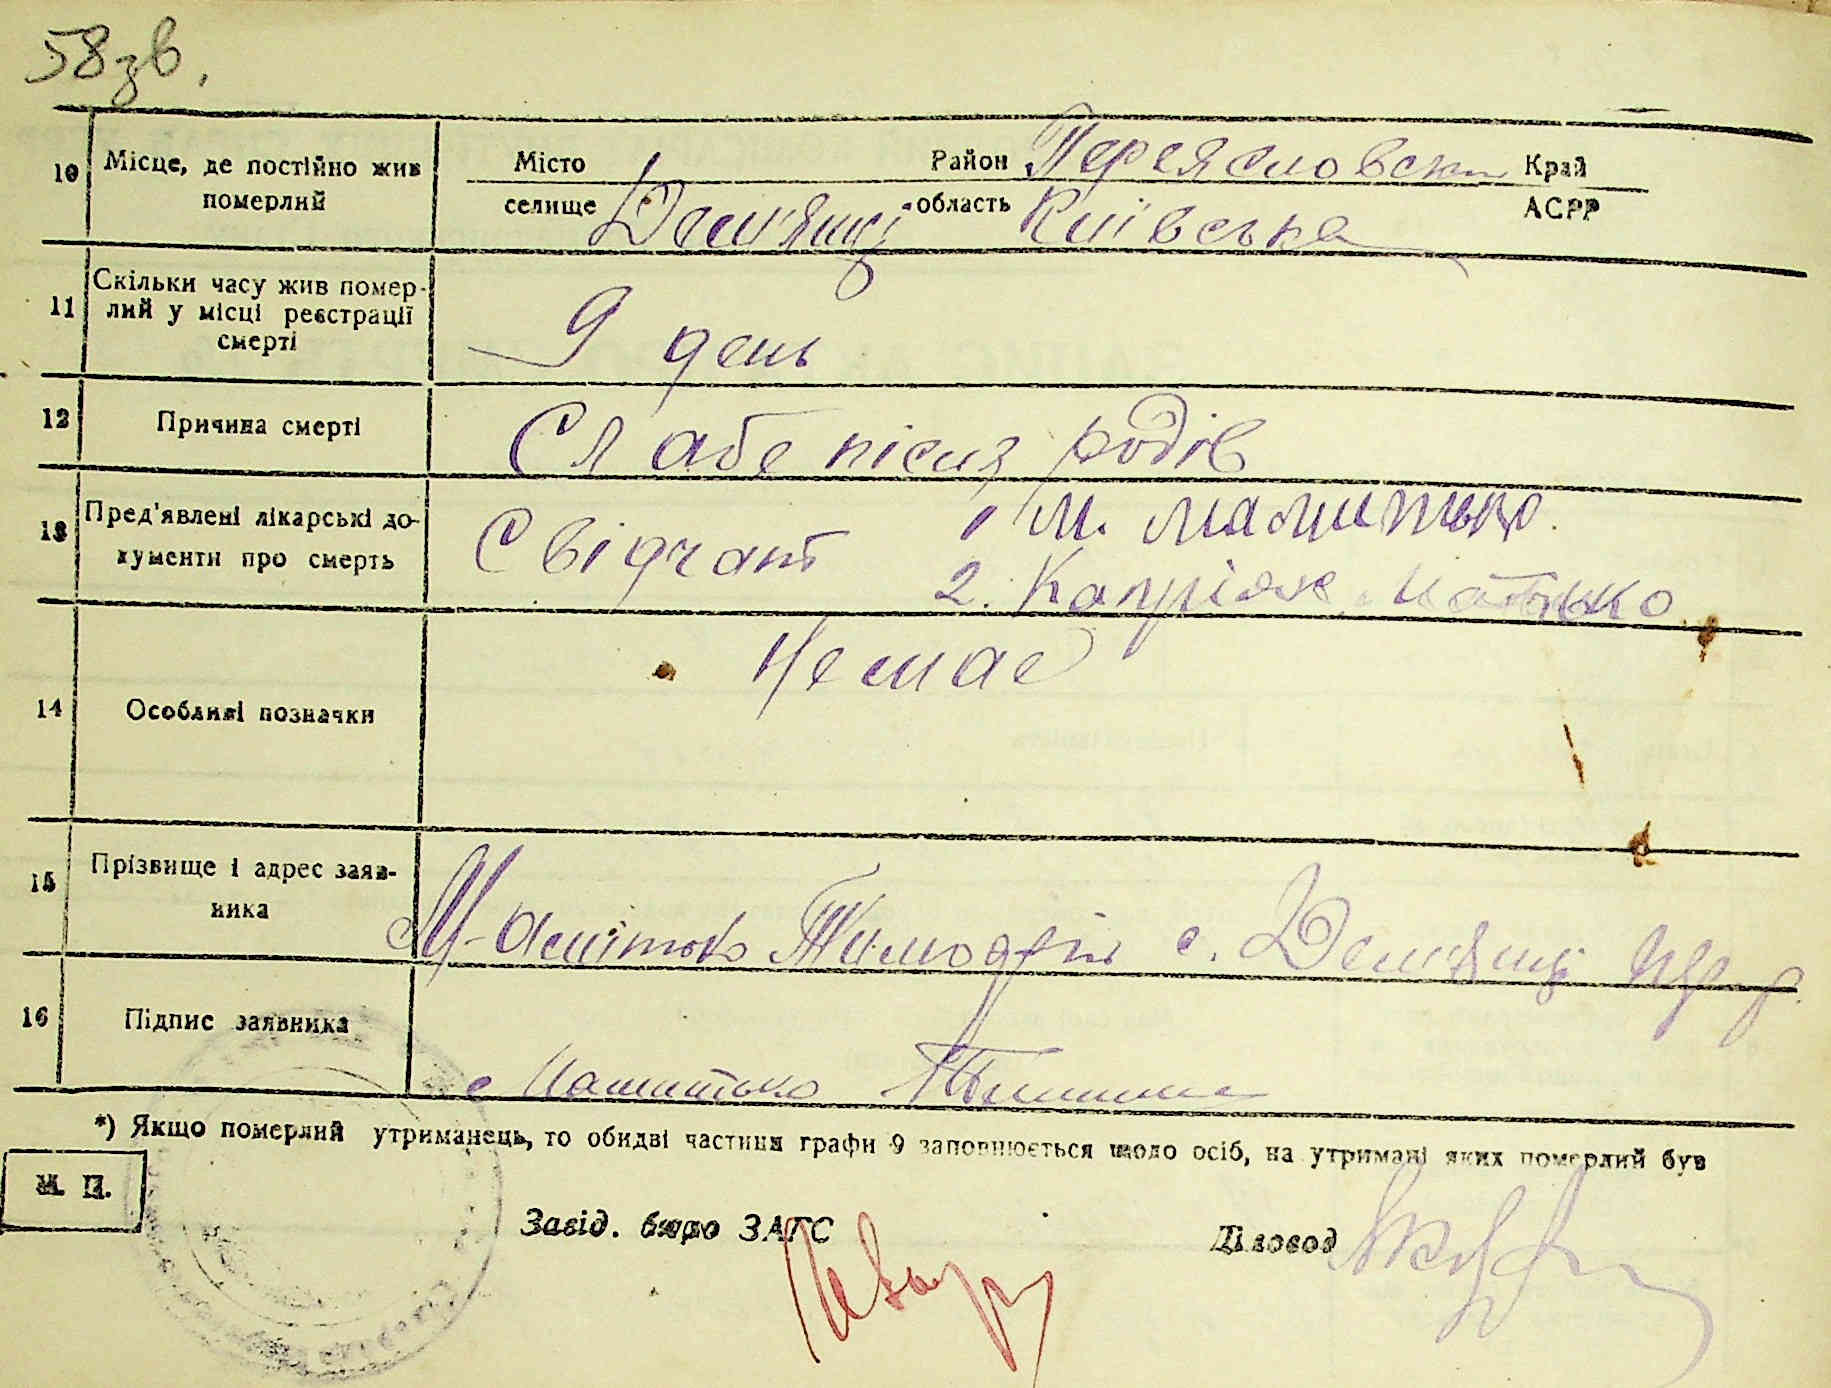 58зв.
10 Місце, де постійно жив померлий
Місто Район Переясловськ Край
селище Дем'янці область Київська АСРР
11 Скільки часу жив помер-
лий у місці реєстрації
смерті
9 день
12 Причина смерті Слабе після родів
13 Пред'явлені лікарські до-
кументи про смерть
Свідчат 1 М.
2.
14 Особливі позначки Немає
15 Прізвище і адрес заяв-
ника
Тимофій с. Дем'янці
16 Підпис заявника
*) Якщо померлий утриманець, то обидві частини графи 9 заповнюється щодо осіб, на утримані яких померлий був
М. П.
Завід. бюро ЗАГС Діловод